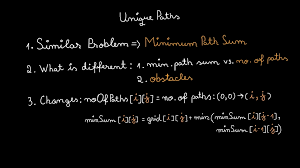 Unique Paths
1. Similar Problem => Minimum Path Sum
2. What is different : 1. min. path sum vs. no. of paths
2. obstacles
3. Changes: noOfPaths[i][j] = no. of paths: (0,0) → (i, j)
minSum[i][j] = grid[i][j] + min(minSum[i][j-1],
minSum[i-1][j])